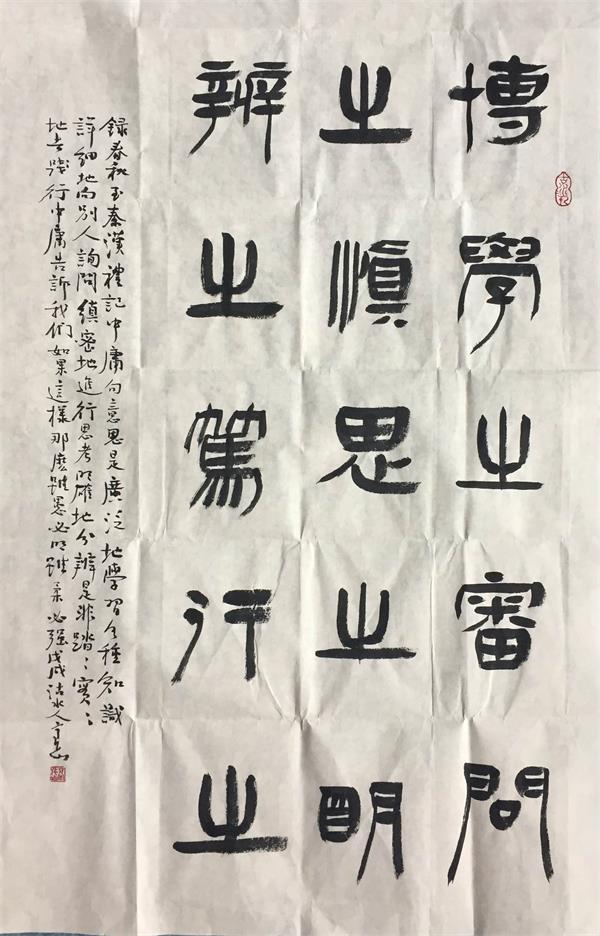 博學之審問
之慎思之明
辨之篤行之
録春秋至秦漢禮記中庸句意思是廣泛地學習各種知識
詳細地向別人詢問縝密地進行思考明確地分辨是非踏〻實〻
地去踐行中庸告訴我們如果這樣那麼雖愚必明雖柔必强戊戌沽水人